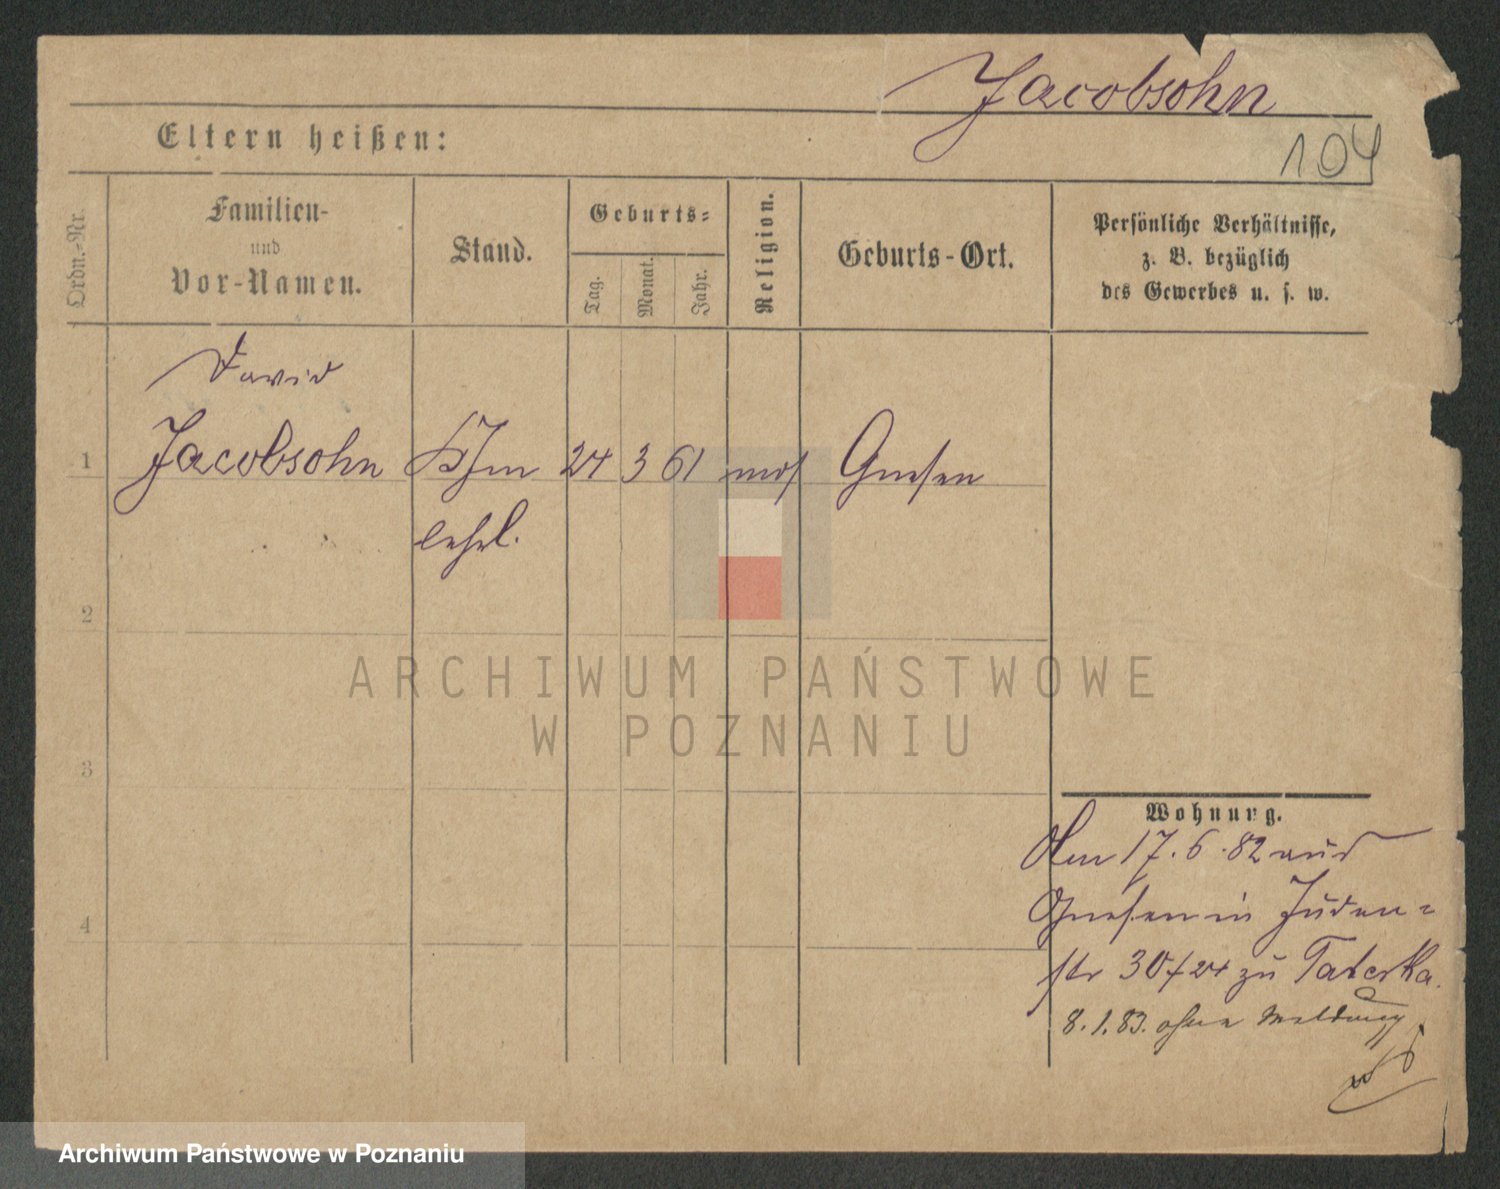 Jacobsohn
Eltern heißen:
104
Ordn.-Nr.
Familien-
und
Vor-Namen.
Stand.
Geburts-
Tag.
Monat.
Jahr.
Religion.
Geburts-Ort.
Persönliche Verhältnisse,
z. B. bezüglich
des Gewerbes u. s. w.
David
1 Jacobsohn Kfm 24 3 61 mos Gnesen
lehrl.
2
3
4
ARCHIWUM PAŃSTWOWE
W POZNANIU
Wohnung.
Am 17.6.82 aus
Gnesen in Juden=
str 30/24 zu Taterka.
8.1.83. ohne Meldung
Archiwum Państwowe w Poznaniu